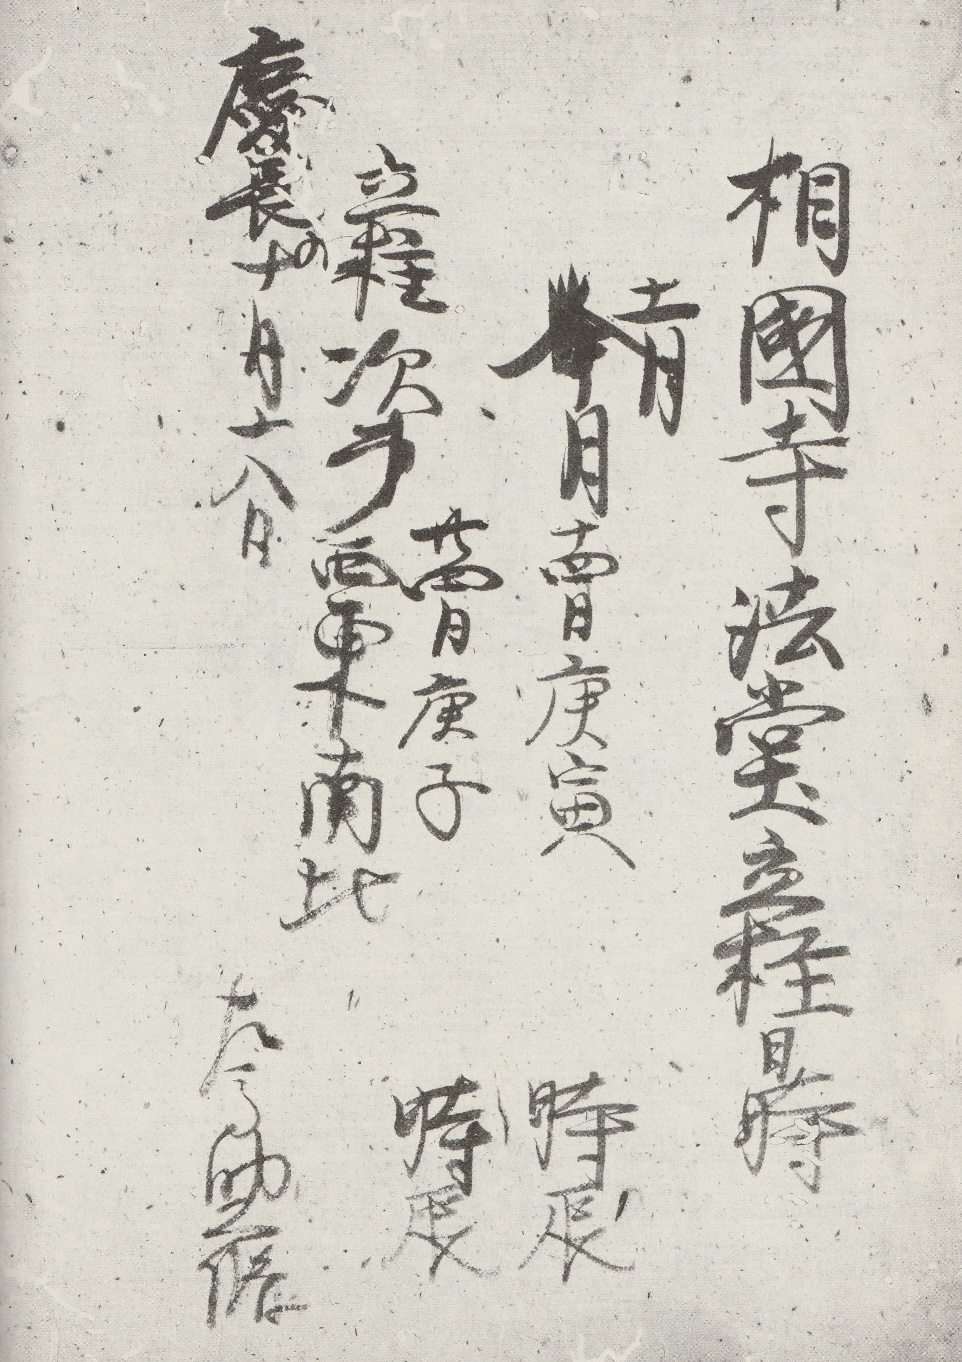 相國寺法堂立柱日時
十一月
月十四日庚寅 時辰
廿四日庚子 時辰
立柱次第 西東南北
慶長十 月十八日 左馬助久脩